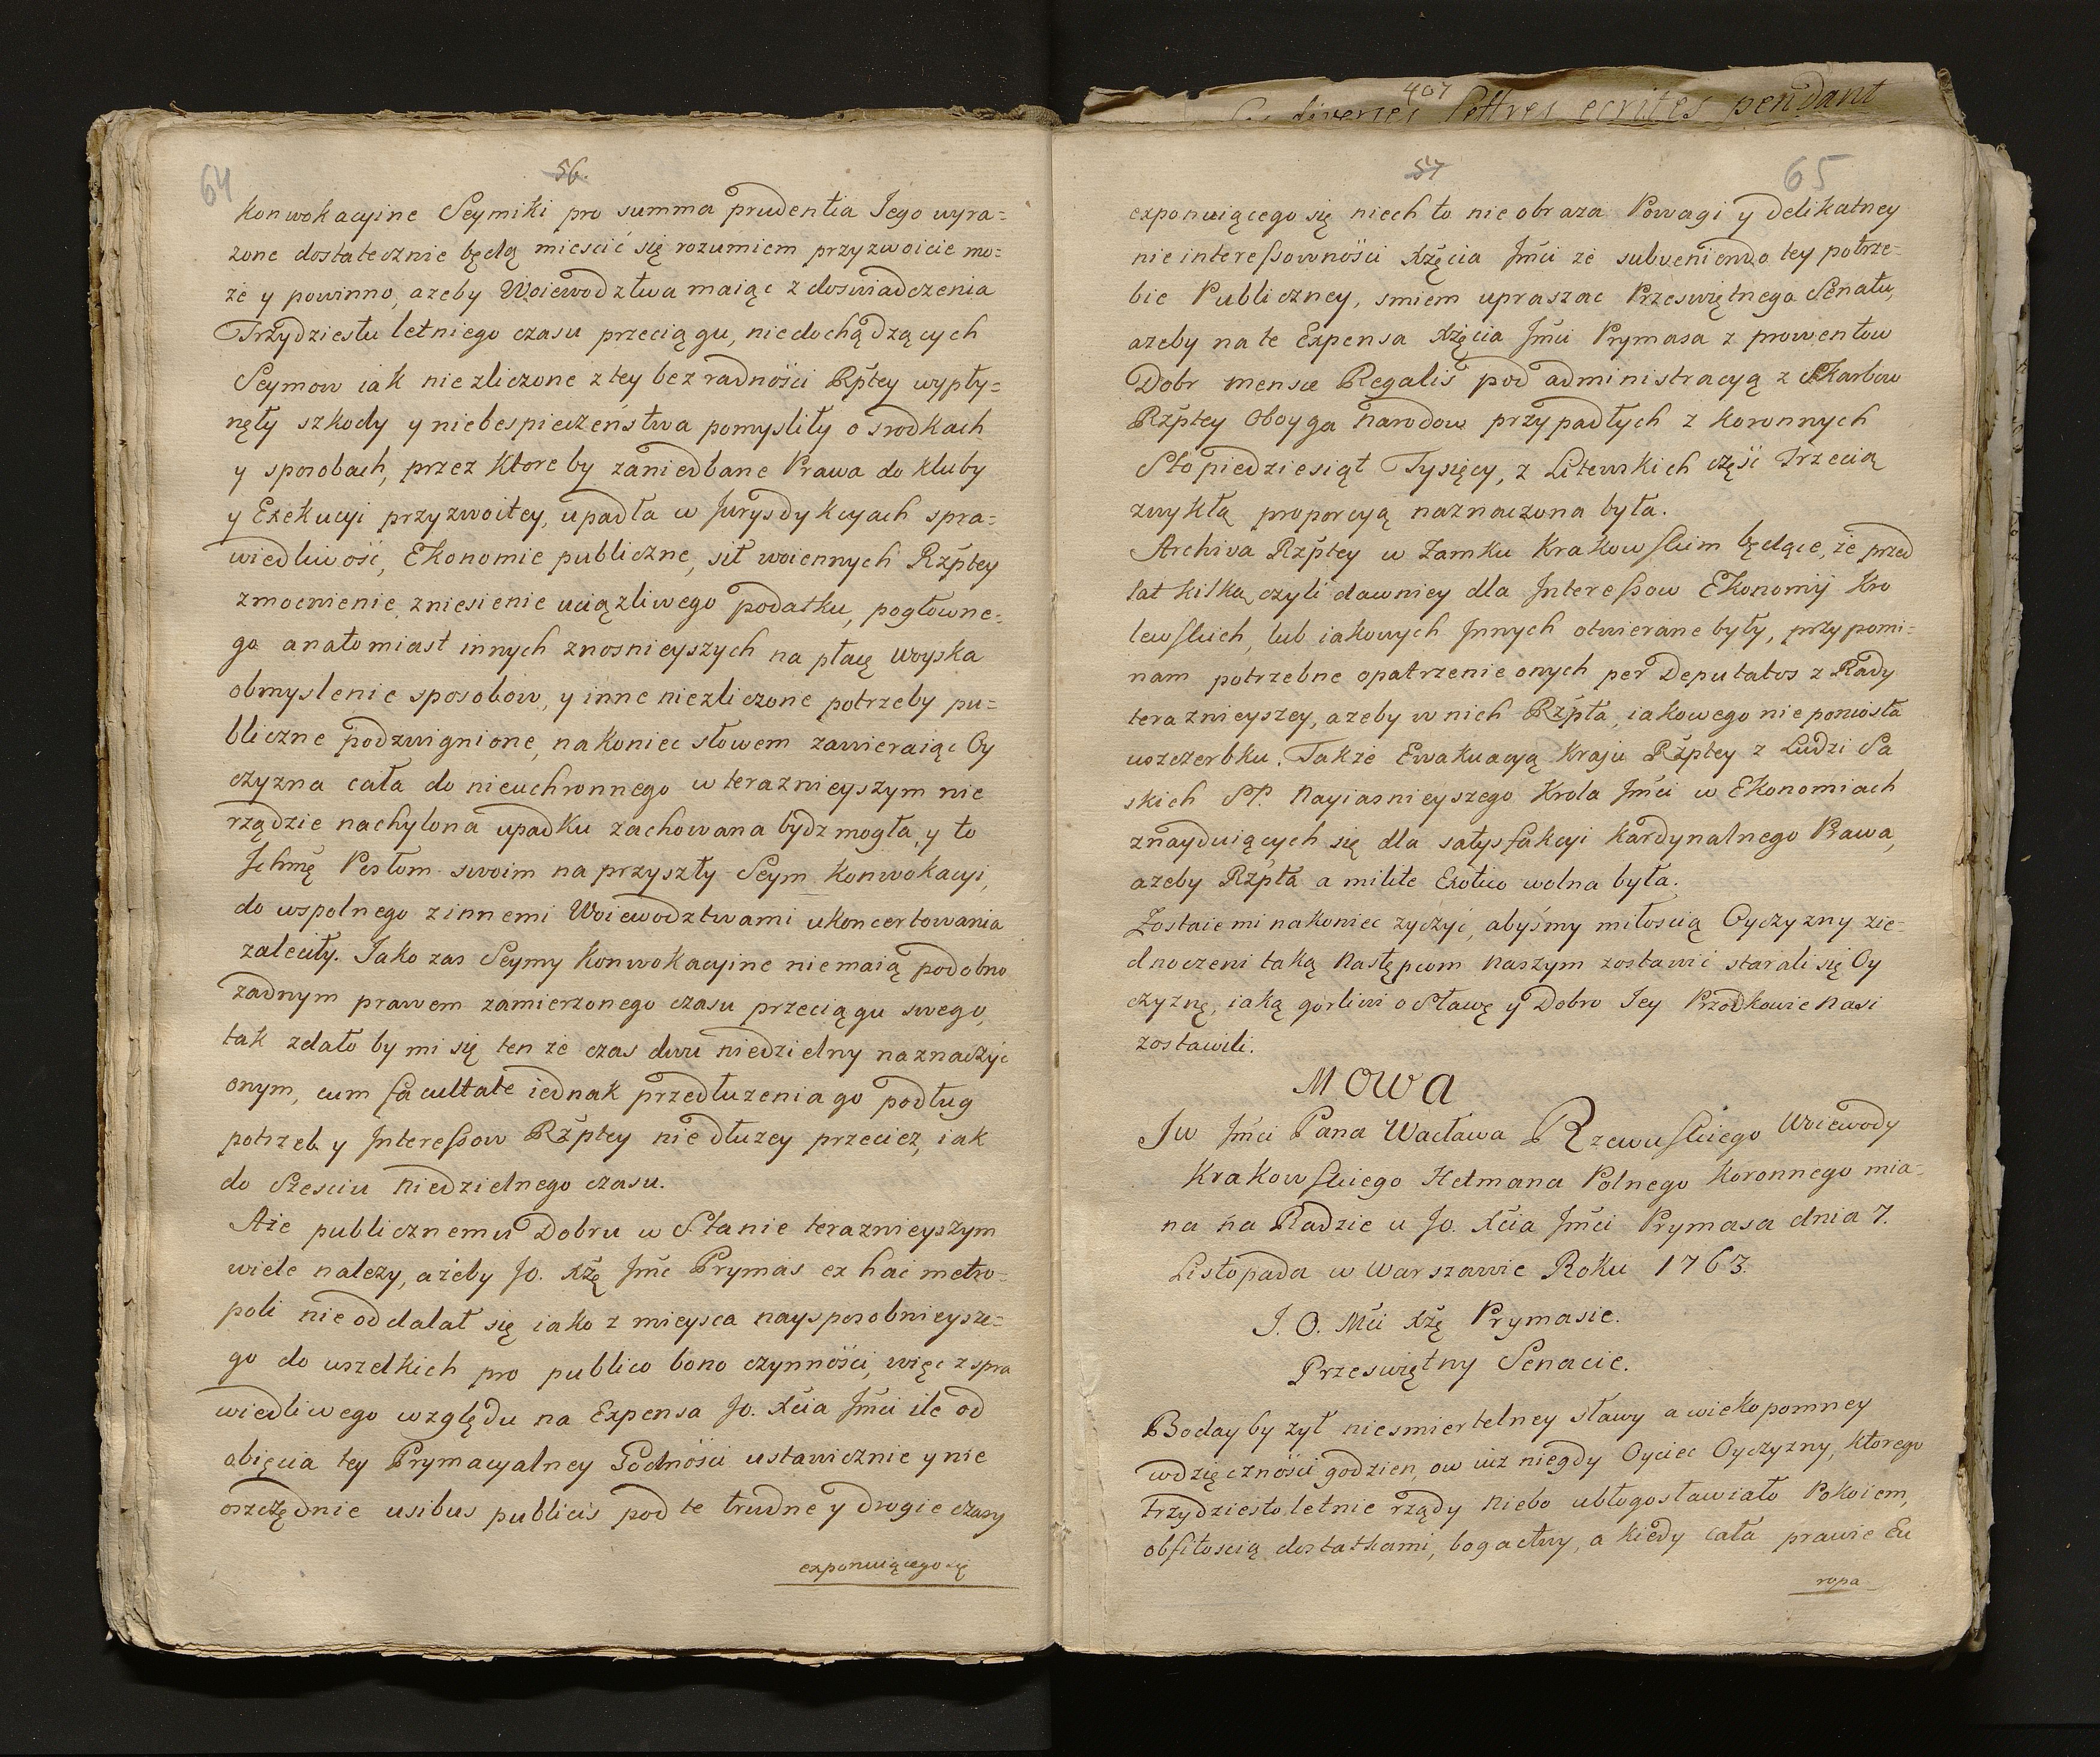 64
56.
konwokacyine Seymiki pro summa prudentia Jego wyra=
zone dostatecznie będą miescić się rozumiem przyzwoicie mo=
że y powinno, azeby Woiewodztwa maiąc z doswiadczenia
Trzydziestu letniego czasu przeciągu, niedochądzących
Seymow iak niezliczone z tey bezradności Rzptey wypły=
nęły szkody y niebespieczeństwa pomysliły o srodkach
y sposobach, przez ktore by zaniedbane Prawa do kluby
y Exekucyi przyzwoitey, upadła w Jurysdykcyach spra=
wiedliwość, Ekonomie publiczne, sił woiennych Rzptey
zmocnienie zniesienie uciązliwego podatku, pogłowne=
go anatomiast innych znosnieyszych na płacę woyska
obmyslenie sposobow, y inne niezliczone potrzeby pu=
bliczne podzwignione, nakoniec słowem zawieraiąc Oy
czyzna cała do nieuchronnego w teraznieyszym nie
rządzie nachylona upadku zachowana bydz mogła, y to
Jchmę Posłom swoim na przyszły Seym konwokacyi,
do wspolnego z innemi Woiewodztwami ukoncertowania
zaleciły. Jako zas Seymy konwokacyine niemaią podobno
zadnym prawem zamierzonego czasu przeciągu swego,
tak zdało by mi się ten że czas dwu niedzielny naznaczyć
onym, cum facultate iednak przedłuzenia go podług
potrzeb y Interessow Rzptey niedłuzey przeciez, iak
do Szesciu niedzielnego czasu.
Aże publicznemu Dobru w Stanie teraznieyszym
wiele nalezy, ażeby Jo. Xżę Jmć Prymas ex hac metro=
poli nieoddalał się iako z mieysca naysposobnieysze=
go do wszelkich pro publico bono czynności, więc z spra
wiedliwego względu na Expensa Jo. Xcia Jmci ile od
obięcia tey Prymacyalney Godności ustawicznie y nie
oszczędnie usibus publicis pod te trudne y drogie czasy
exponuiącego się
407
diverses lettres ecrites pendant
57
65
exponuiącego się niech to nieobraza Powagi y delikatney
nieinteressowności Xżęcia Jmci że subveniendo tey potrze=
bie Publiczney, smiem upraszac Przeswiętnego Senatu,
azeby na te Expensa Xżęcia Jmci Prymasa z prowentow
Dobr mensæ Regalis pod administracyą z Skarbow
Rzptey Oboyga Narodow przypadłych z koronnych
Stopiedziesiąt Tysięcy, z Litewskich część trzecią
zwykłą proporcyą naznaczona była.
Archiva Rzptey w Zamku Krakowskim będące, że przed
lat kilką, czyli dawniey dla Interessow Ekonomij Kro
lewskich, lub iakowych Jnnych otwierane były, przypomi=
nam potrzebne opatrzenie onych per Deputatos z Rady
teraznieyszey, azeby w nich Rzpta, iakowego nie poniosła
uszczerbku. Także Ewakuacyą kraju Rzptey z Ludzi Sa
skich SP. Nayiasnieyszego Krola Jmci w Ekonomiach
znayduiących się dla satysfakcyi kardynalnego Prawa,
azeby Rzpta a milite Exotico wolna była.
Zostaie mi nakoniec zyczyć, abyśmy miłoscią Oyczyzny zie=
dnoczeni taką Następcom naszym zostawić starali się Oy
czyznę, iaką gorliwi o Sławę y Dobro Jey Przodkowie Nasi
zostawili.
Mowa
Jw Jmci Pana Wacława Rzewuskiego Woiewody
Krakowskiego Hetmana Polnego Koronnego mia=
na na Radzie u Jo. Xcia Jmci Prymasa dnia 7.
Listopada w Warszawie Roku 1763.
J. O. Mci Xżę Prymasie.
Przeswiętny Senacie.
Boday by zył niesmiertelney sławy a wiekopomney
wdzięczności godzien, ow iuz niegdy Oyciec Oyczyzny, ktorego
trzydziesto letnie rządy Niebo ubłogosławiało Pokoiem,
obfitoscią dostatkami, bogactwy, a kiedy cała prawie Eu
ropa